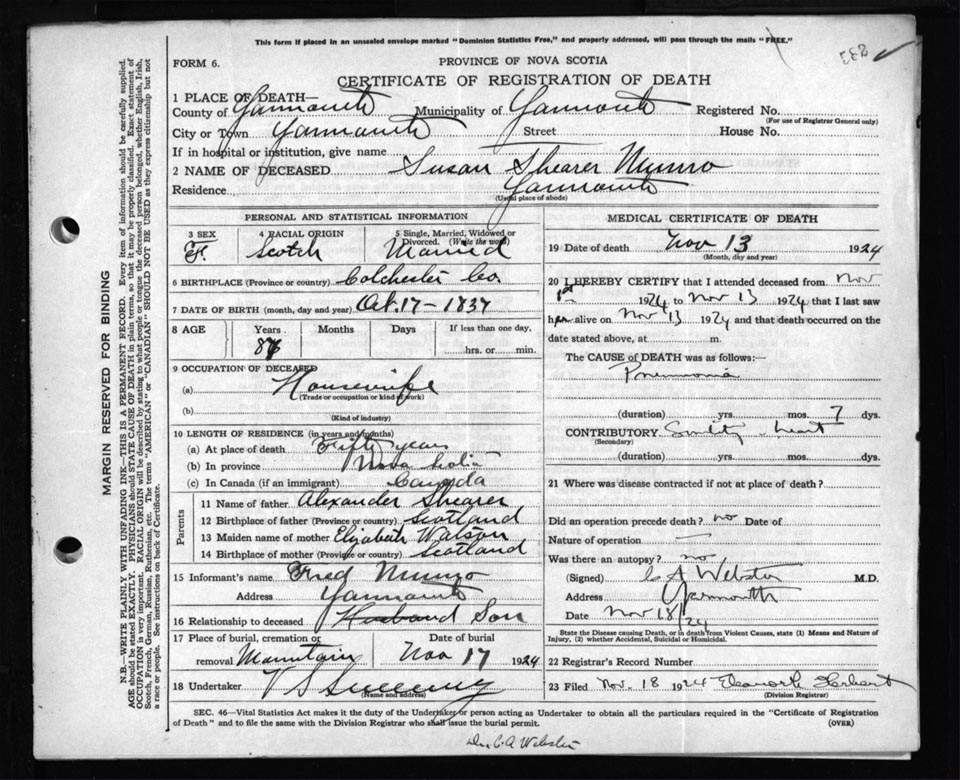 This form if placed in an unsealed envelope marked "Dominion Statistics Free," and properly addressed, will pass through the mails "FREE."
332
FORM 6.
PROVINCE OF NOVA SCOTIA
CERTIFICATE OF REGISTRATION OF DEATH
1 PLACE OF DEATH—
County of Yarmouth Municipality of Yarmouth Registered No.
(For use of Registrar General only)
City or Town Yarmouth Street House No.
If in hospital or institution, give name
2 NAME OF DECEASED Susan Shearer Munro
Residence Yarmouth
(Usual place of abode)
PERSONAL AND STATISTICAL INFORMATION
3 SEX 4 RACIAL ORIGIN 5 Single, Married, Widowed or Divorced. (Write the word)
F. Scotch Married
6 BIRTHPLACE (Province or country) Colchester Co.
7 DATE OF BIRTH (month, day and year) Oct. 17 - 1837
8 AGE Years Months Days If less than one day,
hrs. or min.
9 OCCUPATION OF DECEASED
(a) Housewife
(Trade or occupation or kind of work)
(b)
(Kind of industry)
10 LENGTH OF RESIDENCE (in years and months)
(a) At place of death Fifty years
(b) In province Nova Scotia
(c) In Canada (if an immigrant) Canada
Parents
11 Name of father Alexander Shearer
12 Birthplace of father (Province or country) Scotland
13 Maiden name of mother Elizabeth Watson
14 Birthplace of mother (Province or country) Scotland
15 Informant's name Fred Munro
Address Yarmouth
16 Relationship to deceased Husband Son
17 Place of burial, cremation or removal Mountain
Date of burial Nov 17 1924
18 Undertaker V S Sweeney
(Name and address)
MEDICAL CERTIFICATE OF DEATH
19 Date of death Nov 13 1924
(Month, day and year)
20 I HEREBY CERTIFY that I attended deceased from Nov
1st 1924 to Nov 13 1924 that I last saw
her alive on Nov 13 1924 and that death occurred on the
date stated above, at m.
The CAUSE OF DEATH was as follows:—
Pneumonia
(duration) yrs. mos. 7 dys.
CONTRIBUTORY Senility heart
(Secondary)
(duration) yrs. mos. dys.
21 Where was disease contracted if not at place of death?
Did an operation precede death? no Date of
Nature of operation —
Was there an autopsy? no
(Signed) C A Webster M.D.
Address Yarmouth
Date Nov 18/24
State the Disease causing Death, or in death from Violent Causes, state (1) Means and Nature of
Injury, (2) whether Accidental, Suicidal or Homicidal.
22 Registrar's Record Number
23 Filed Nov. 18 1924
(Division Registrar)
SEC. 46—Vital Statistics Act makes it the duty of the Undertaker or person acting as Undertaker to obtain all the particulars required in the "Certificate of Registration
of Death" and to file the same with the Division Registrar who shall issue the burial permit. (OVER)
Dr. C. A. Webster
MARGIN RESERVED FOR BINDING
N.B.—WRITE PLAINLY WITH UNFADING INK—THIS IS A PERMANENT RECORD. Every item of information should be carefully supplied.
AGE should be stated EXACTLY. PHYSICIANS should STATE CAUSE OF DEATH in plain terms, so that it may be properly classified. Exact statement of
OCCUPATION is very important. RACIAL ORIGIN will be described by stating to what people or tongue the deceased person belonged, whether English, Irish,
Scotch, French, German, Russian, Ruthenian, etc. The terms "AMERICAN" or "CANADIAN" SHOULD NOT BE USED as they express citizenship but not
a race or people. See instructions on back of Certificate.